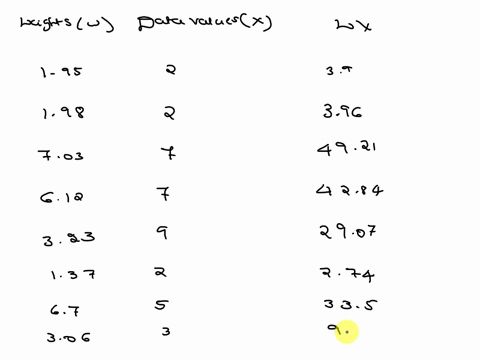 weights(w) Data values(x) wx
1.95 2 3.9
1.98 2 3.96
7.03 7 49.21
6.12 7 42.84
3.23 9 29.07
1.37 2 2.74
6.7 5 33.5
3.06 3 9.